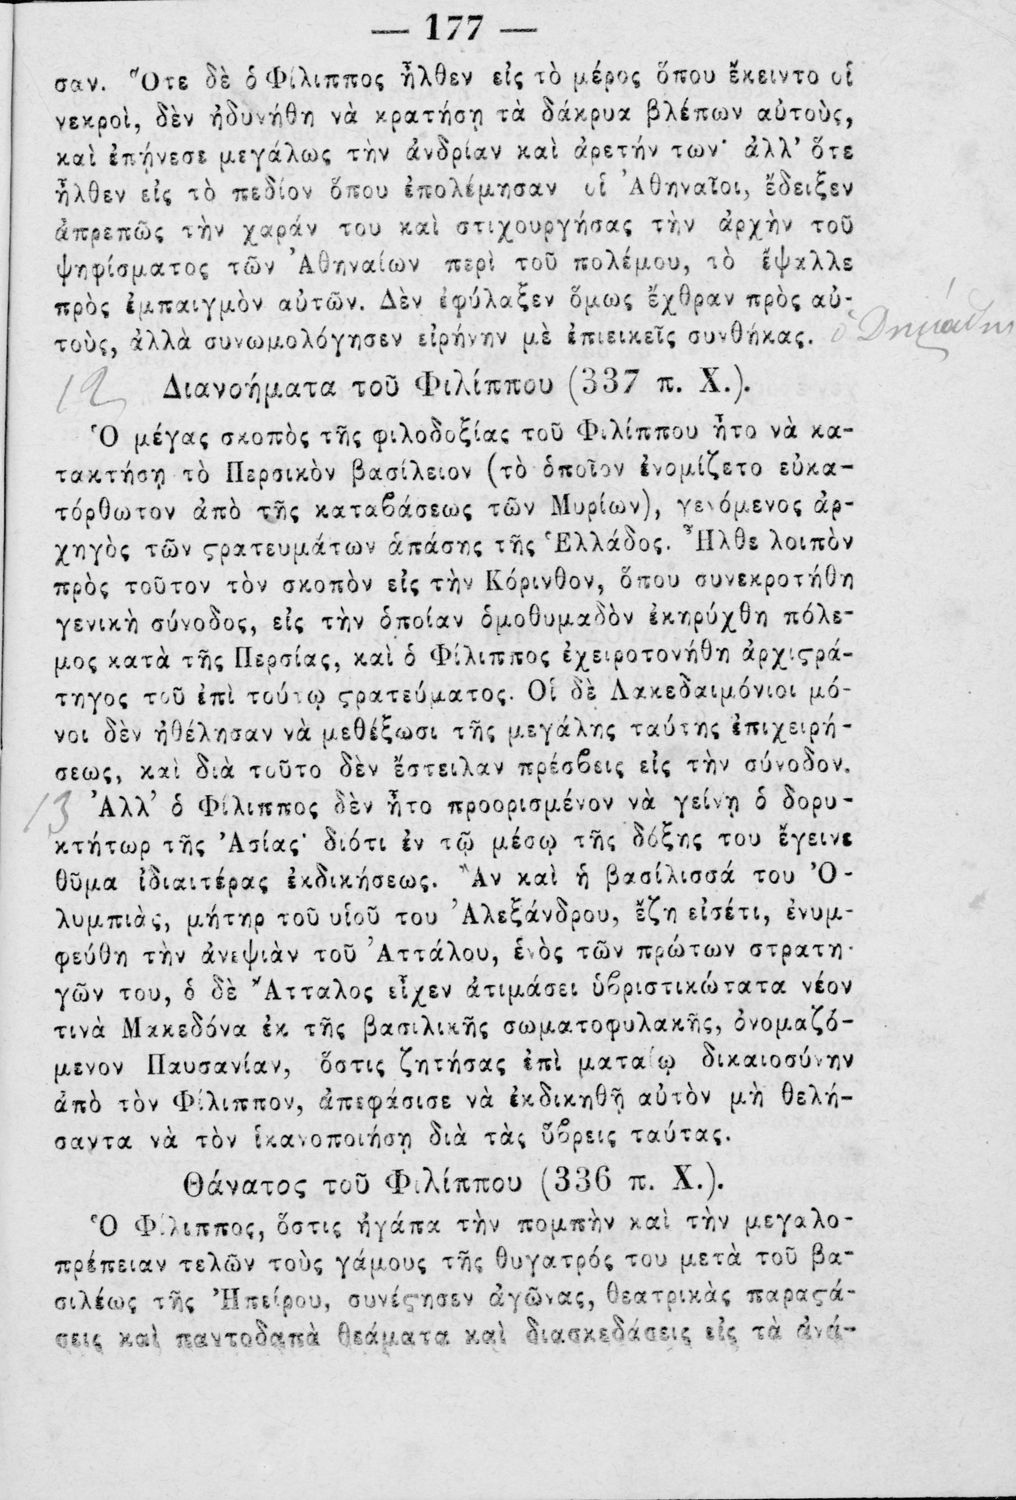 — 177 —
σαν. Ὅτε δὲ ὁ Φίλιππος ἦλθεν εἰς τὸ μέρος ὅπου ἔκειντο οἱ
νεκροὶ, δὲν ἠδυνήθη νὰ κρατήσῃ τὰ δάκρυα βλέπων αὐτοὺς,
καὶ ἐπῄνεσε μεγάλως τὴν ἀνδρίαν καὶ ἀρετήν των· ἀλλ’ ὅτε
ἦλθεν εἰς τὸ πεδίον ὅπου ἐπολέμησαν οἱ Ἀθηναῖοι, ἔδειξεν
ἀπρεπῶς τὴν χαράν του καὶ στιχουργήσας τὴν ἀρχὴν τοῦ
ψηφίσματος τῶν Ἀθηναίων περὶ τοῦ πολέμου, τὸ ἔψαλλε
πρὸς ἐμπαιγμὸν αὐτῶν. Δὲν ἐφύλαξεν ὅμως ἔχθραν πρὸς αὐ-
τοὺς, ἀλλὰ συνωμολόγησεν εἰρήνην μὲ ἐπιεικεῖς συνθήκας. ὁ Δημάδης
12 Διανοήματα τοῦ Φιλίππου (337 π. Χ.).
Ὁ μέγας σκοπὸς τῆς φιλοδοξίας τοῦ Φιλίππου ἦτο νὰ κα-
τακτήσῃ τὸ Περσικὸν βασίλειον (τὸ ὁποῖον ἐνομίζετο εὐκα-
τόρθωτον ἀπὸ τῆς καταϐάσεως τῶν Μυρίων), γενόμενος ἀρ-
χηγὸς τῶν ϛρατευμάτων ἁπάσης τῆς Ἑλλάδος. Ἦλθε λοιπὸν
πρὸς τοῦτον τὸν σκοπὸν εἰς τὴν Κόρινθον, ὅπου συνεκροτήθη
γενικὴ σύνοδος, εἰς τὴν ὁποίαν ὁμοθυμαδὸν ἐκηρύχθη πόλε-
μος κατὰ τῆς Περσίας, καὶ ὁ Φίλιππος ἐχειροτονήθη ἀρχιϛρά-
τηγος τοῦ ἐπὶ τούτῳ ϛρατεύματος. Οἱ δὲ Λακεδαιμόνιοι μό-
νοι δὲν ἠθέλησαν νὰ μεθέξωσι τῆς μεγάλης ταύτης ἐπιχειρή-
σεως, καὶ διὰ τοῦτο δὲν ἔστειλαν πρέσϐεις εἰς τὴν σύνοδον.
13 Ἀλλ’ ὁ Φίλιππος δὲν ἦτο προορισμένον νὰ γείνῃ ὁ δορυ-
κτήτωρ τῆς Ἀσίας· διότι ἐν τῷ μέσῳ τῆς δόξης του ἔγεινε
θῦμα ἰδιαιτέρας ἐκδικήσεως. Ἂν καὶ ἡ βασίλισσά του Ὀ-
λυμπιὰς, μήτηρ τοῦ υἱοῦ του Ἀλεξάνδρου, ἔζη εἰσέτι, ἐνυμ-
φεύθη τὴν ἀνεψιὰν τοῦ Ἀττάλου, ἑνὸς τῶν πρώτων στρατη-
γῶν του, ὁ δὲ Ἄτταλος εἶχεν ἀτιμάσει ὑϐριστικώτατα νέον
τινὰ Μακεδόνα ἐκ τῆς βασιλικῆς σωματοφυλακῆς, ὀνομαζό-
μενον Παυσανίαν, ὅστις ζητήσας ἐπὶ ματαίῳ δικαιοσύνην
ἀπὸ τὸν Φίλιππον, ἀπεφάσισε νὰ ἐκδικηθῇ αὐτὸν μὴ θελή-
σαντα νὰ τὸν ἱκανοποιήσῃ διὰ τὰς ὕϐρεις ταύτας.
Θάνατος τοῦ Φιλίππου (336 π. Χ.).
Ὁ Φίλιππος, ὅστις ἠγάπα τὴν πομπὴν καὶ τὴν μεγαλο-
πρέπειαν τελῶν τοὺς γάμους τῆς θυγατρός του μετὰ τοῦ βα-
σιλέως τῆς Ἠπείρου, συνέϛησεν ἀγῶνας, θεατρικὰς παραϛά-
σεις καὶ παντοδαπὰ θεάματα καὶ διασκεδάσεις εἰς τὰ ἀνά-